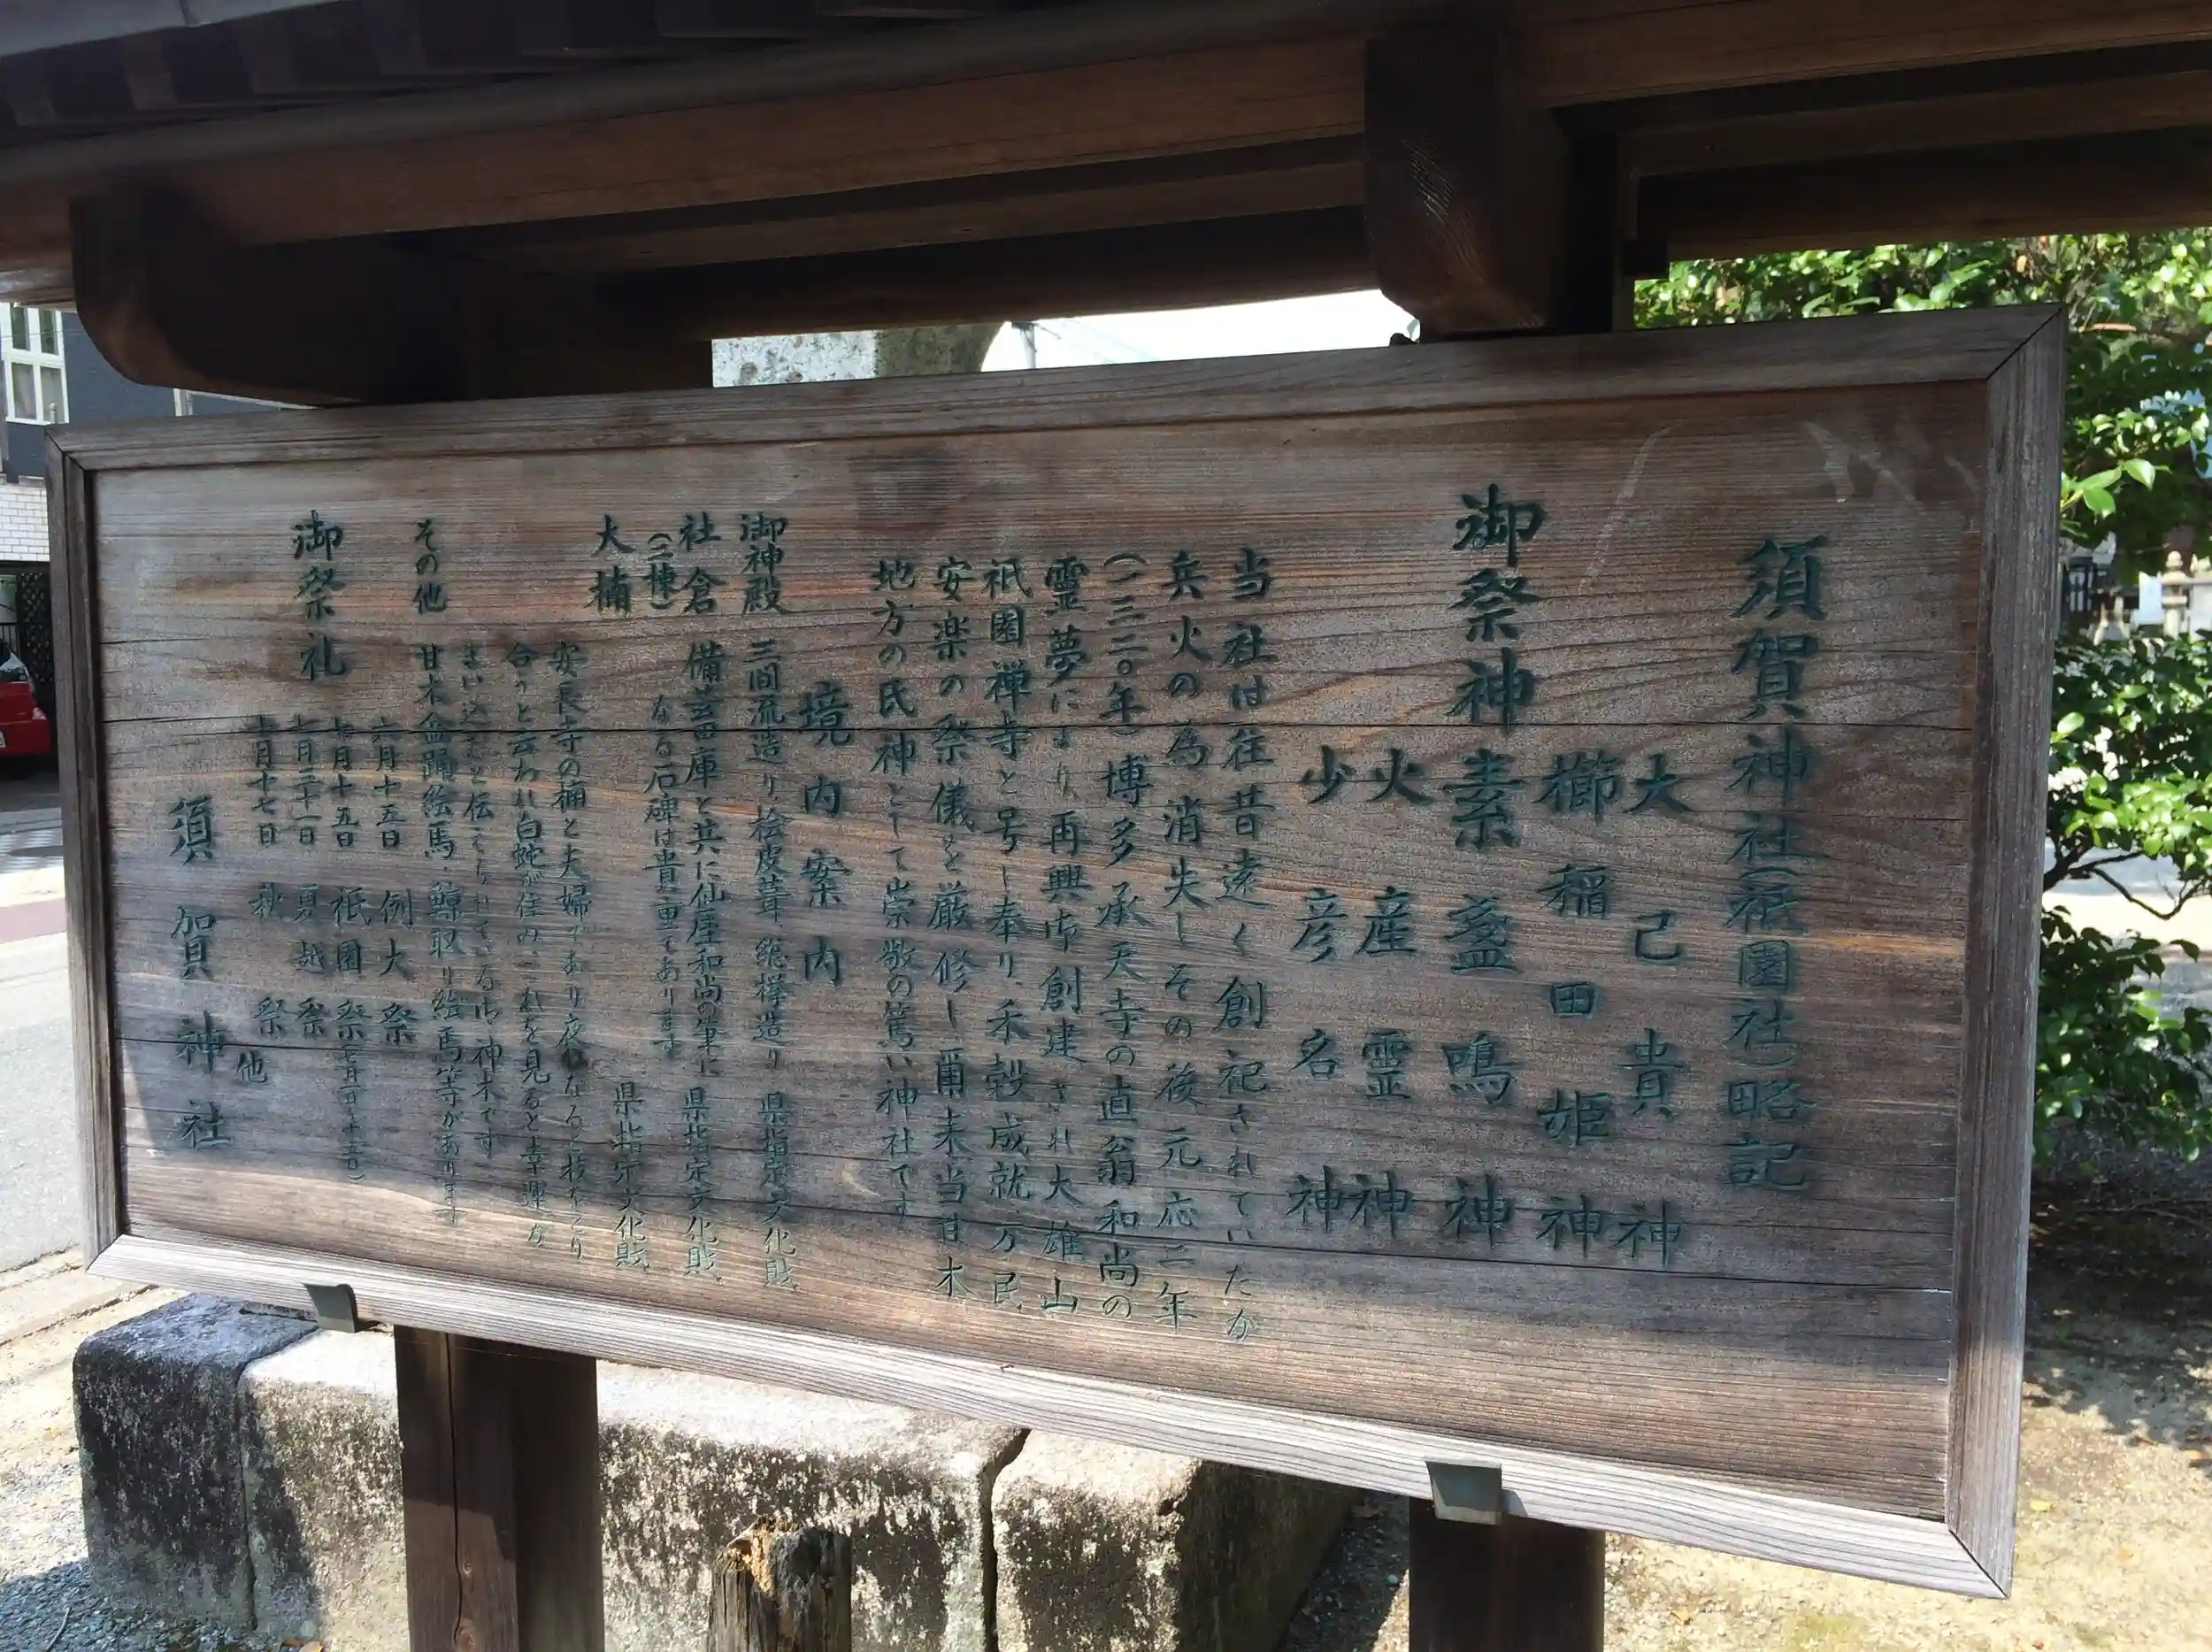 須賀神社(祇園社)略記
大己貴神
櫛稲田姫神
御祭神 素盞鳴神
火産霊神
少彦名神
当社は往昔遠く創祀されていたが
兵火の為消失しその後元応二年
(一三二〇年)博多承天寺の直翁和尚の
霊夢により再興御創建され大雄山
祇園禅寺と号し奉り、禾穀成就万民
安楽の祭儀を厳修し爾来当甘木
地方の氏神として崇敬の篤い神社です
境内案内
御神殿 三間流造り桧皮葺、総欅造り 県指定文化財
社倉 備荒倉庫と共に仙厓和尚の筆に 県指定文化財
(二棟) なる石碑は貴重であります
大楠 県指定文化財
安長寺の楠と夫婦であり夜になると枝をとり
合うと云われ白蛇が住み、これを見ると幸運が
まい込むと伝えられている御神木です
その他 甘木盆踊絵馬・鯨取り絵馬等があります
御祭礼 六月十五日 例大祭
七月十五日 祇園祭(七月一日〜十五日)
七月三十一日 夏越祭
十月十七日 秋祭 他
須賀神社